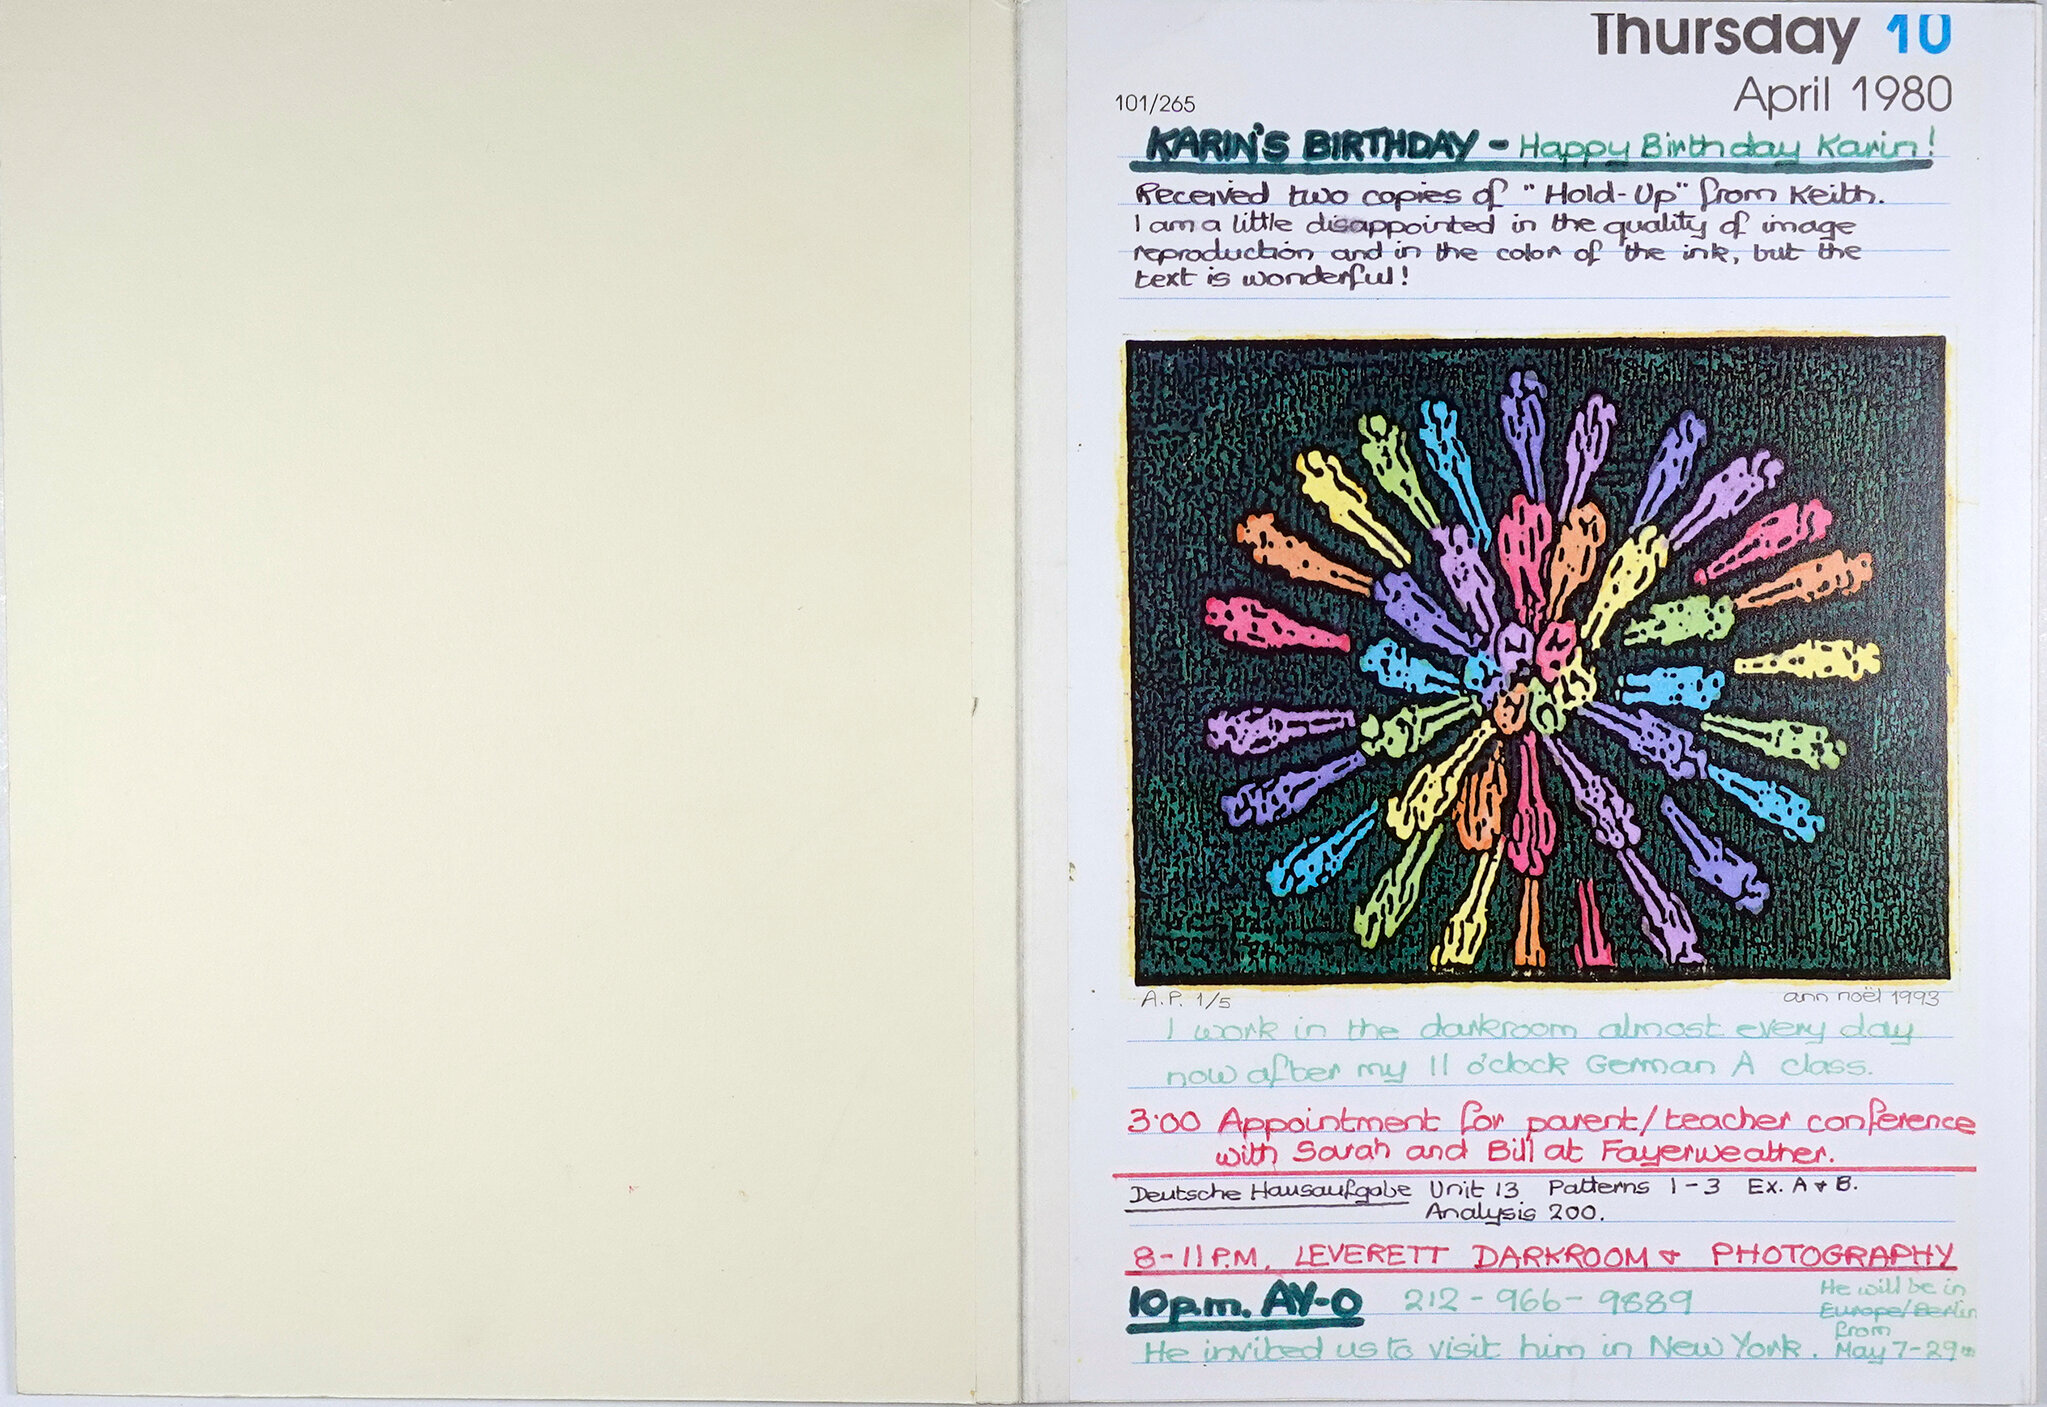 Thursday 10
April 1980
101/265
KARIN'S BIRTHDAY - Happy Birthday Karin!
Received two copies of "Hold-Up" from Keith.
I am a little disappointed in the quality of image
reproduction and in the color of the ink, but the
text is wonderful!
A.P. 1/5
ann noël 1993
I work in the darkroom almost every day
now after my 11 o'clock German A class.
3:00 Appointment for parent/teacher conference
with Sarah and Bill at Fayerweather.
Deutsche Hausaufgabe Unit 13 Patterns 1-3 Ex. A + B.
Analysis 200.
8-11 P.M. LEVERETT DARKROOM + PHOTOGRAPHY
10 p.m. AY-O 212-966-9889
He will be in
Europe/Berlin
from
May 7-29th
He invited us to visit him in New York.